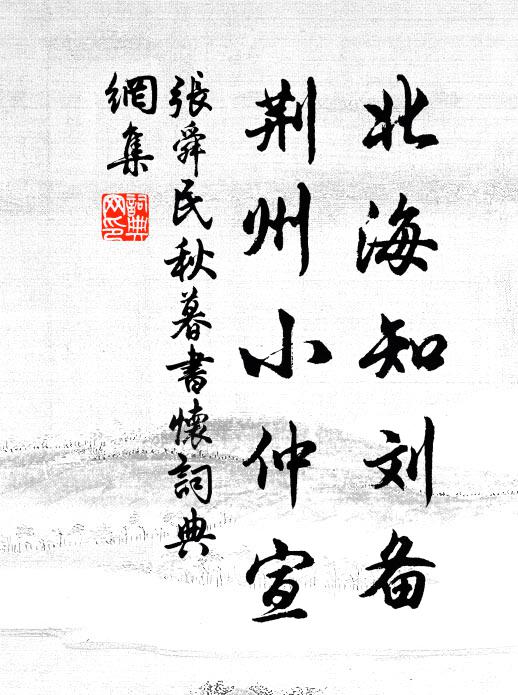 北海知刘备
荆州小仲宣
張舜民秋暮書懷詞典
網集
詞典
网印